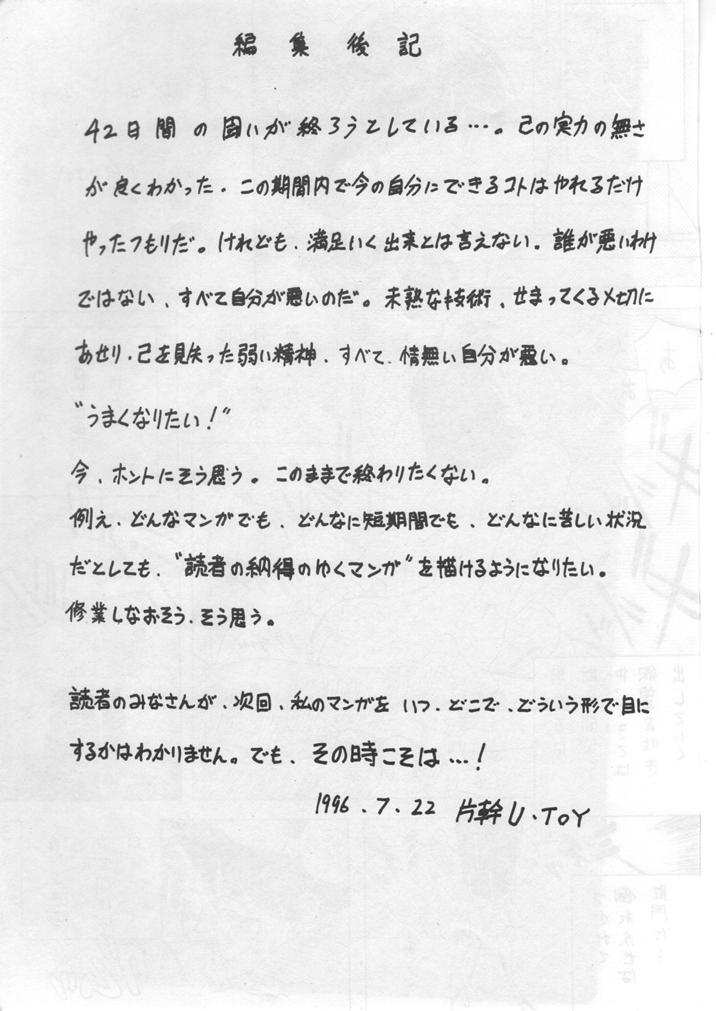 編集後記
42日間の固いが終ろうとしている…。己の実力の無さ
が良くわかった。この期間内で今の自分にできるコトはやれるだけ
やったつもりだ。けれども、満足いく出来とは言えない。誰が悪いわけ
ではない、すべて自分が悪いのだ。未熟な技術、せまってくる〆切に
あせり、己を見失った弱い精神、すべて、情無い自分が悪い。
“うまくなりたい！”
今、ホントにそう思う。このままで終わりたくない。
例え、どんなマンガでも、どんなに短期間でも、どんなに苦しい状況
だとしても、“読者の納得のゆくマンガ”を描けるようになりたい。
修業しなおそう、そう思う。
読者のみなさんが、次回、私のマンガを いつ、どこで、どういう形で目に
するかはわかりません。でも、その時こそは…！
1996.7.22 片幹U・TOY